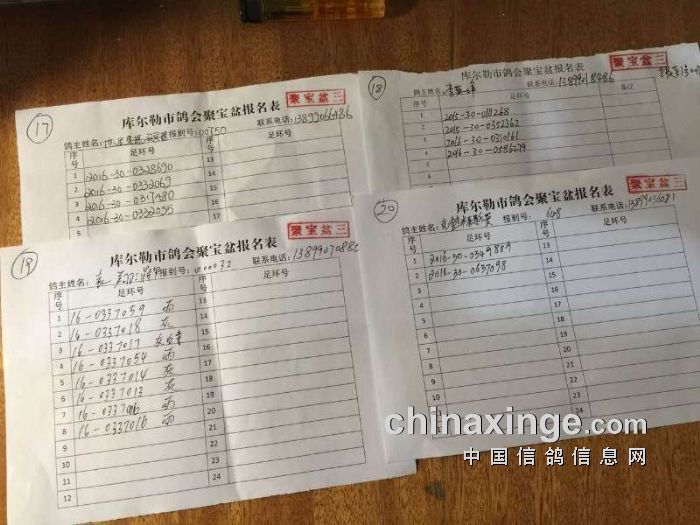 17
聚宝盆三
库尔勒市鸽会聚宝盆报名表
鸽主姓名: 报到号: 00750 联系电话: 13899066486
序号 足环号 序号 足环号
1 2016-30-0328690 13
2 2016-30-0332069 14
3 2016-30-0317480 15
4 2016-30-0332055 16
5 17
18
聚宝盆三
库尔勒市鸽会聚宝盆报名表
鸽主姓名: 联系电话: 13899018486
序号 足环号 备注
1 2015-30-
2 2015-30-0352362
3 2016-30-0310161
4 2016-30-0586279
19
聚宝盆三
库尔勒市鸽会聚宝盆报名表
鸽主姓名: 报到号: 000032 联系电话:
序号 足环号 序号 足环号
1 16-0337059 雨 13
2 16-0337018 灰 14
3 16-0337017 15
4 16-0337054 雨 16
5 16-0337014 灰 17
6 16-0337013 灰 18
7 雨 19
8 16-0337016 雨 20
9 21
10 22
11 23
12 24
20
聚宝盆三
库尔勒市鸽会聚宝盆报名表
鸽主姓名: 报到号: 608 联系电话:
序号 足环号 序号 足环号
1 2016-30-0349889 13
2 2016-30-0637098 14
3 15
4 16
5 17
6 18
7 19
8 20
9 21
10 22
11 23
12 24
chinaxinge.com
中国信鸽信息网